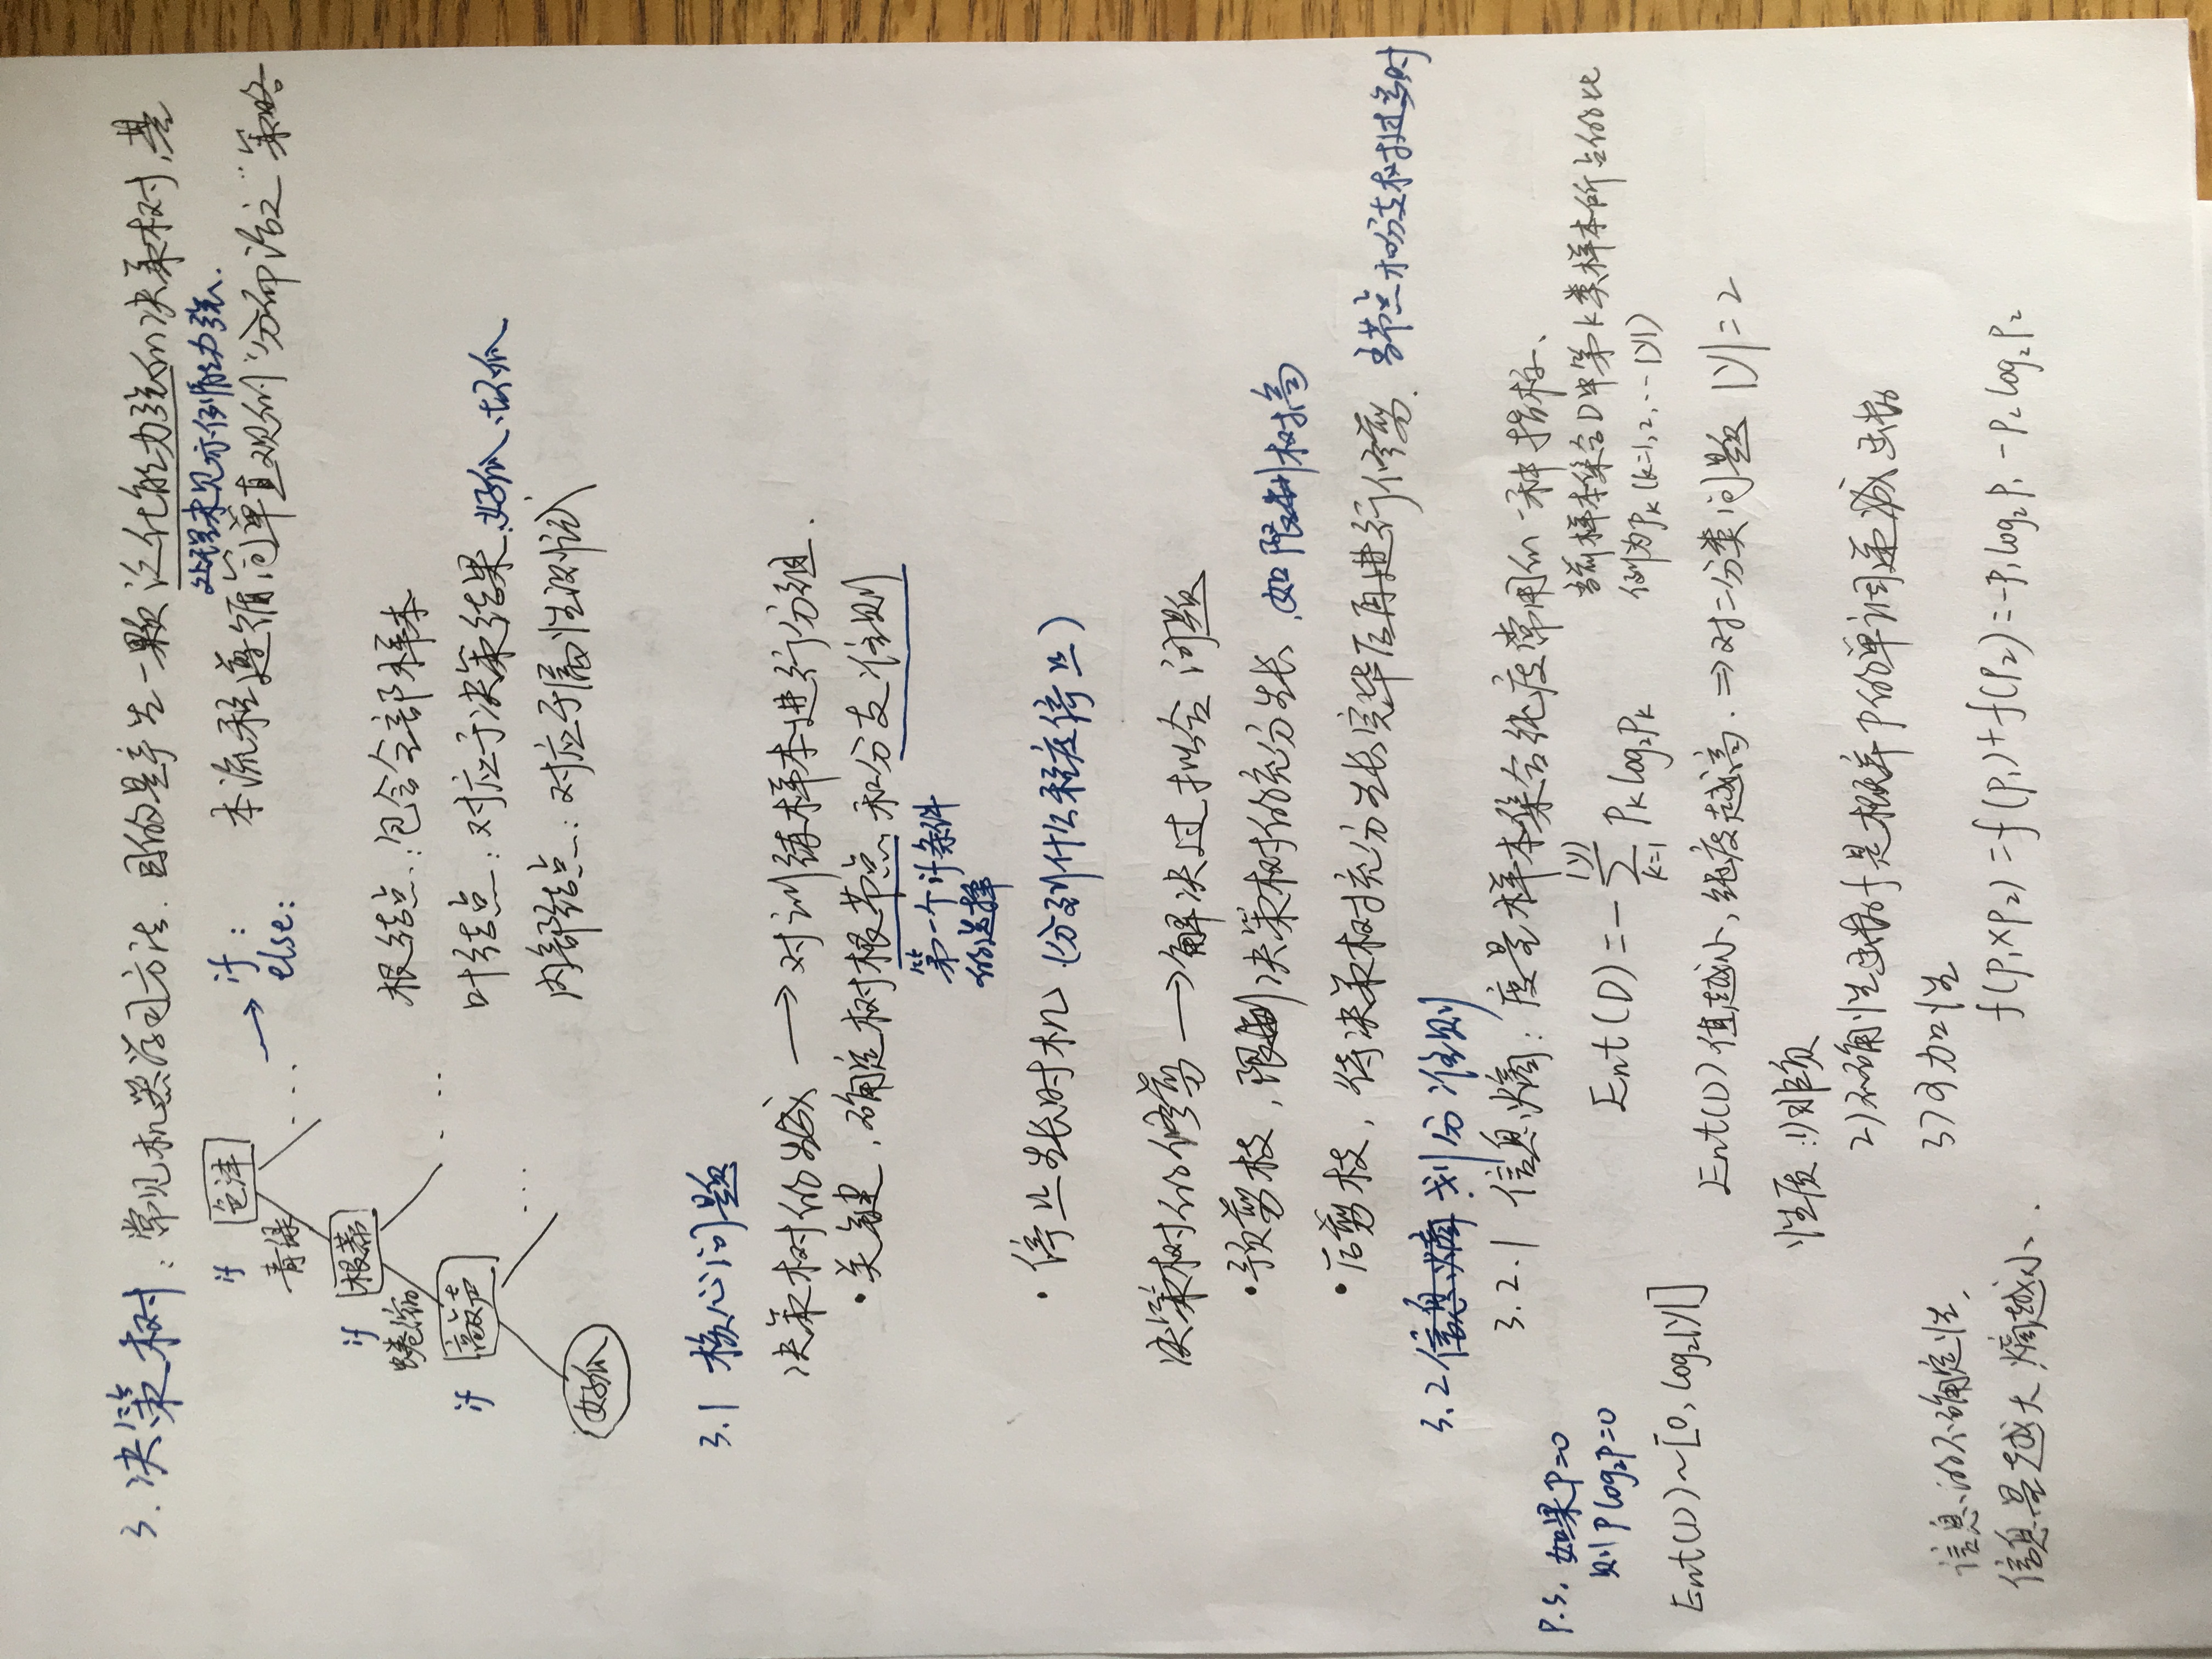 3. 决策树：常见机器学习方法. 目的是产生一颗泛化能力强的决策树,基
处理未见示例能力强.
本流程遵循简单直观的"分而治之"策略
if 色泽
→ if :
else:
青绿 ...
if 根蒂
蜷缩 ...
if 敲声
...
好瓜
根结点：包含全部样本
叶结点：对应于决策结果.好瓜、坏瓜
内部结点：对应于属性测试
3.1 核心问题
决策树的生成 → 对训练样本进行分组.
·关键,确定树根节点和分支准则
第一个if条件
的选择
·停止生长时机 (分到什么程度停止)
决策树的修剪 → 解决过拟合问题
·预剪枝,限制决策树的充分生长,如限制树高
·后剪枝,待决策树充分生长完毕后再进行修剪. 当节点和分支树过多时
3.2 信息熵 划分准则
3.2.1 信息熵：度量样本集合纯度常用的一种指标、
P.S. 如果P=0
则Plog₂P=0
Ent(D)=-∑_{k=1}^{|y|} p_k log₂p_k
当前样本集合D中第k类样本所占的比
例为p_k (k=1,2,…|y|)
Ent(D)~[0, log₂|y|]
Ent(D)值越小,纯度越高. ⇒对二分类问题 |y|=2
性质：1)非负
2)不确性函数f是概率P的单调递减函数
3)可加性
f(p₁×p₂)=f(p₁)+f(p₂)=-p₁log₂p₁-p₂log₂p₂
信息的不确定性,
信息量越大 熵越小.